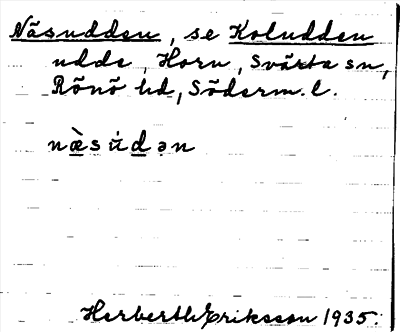 Näsudden, se Koludden
udde, Horn, Svärta sn,
Rönö hd, Söderm. l.
næ̀súdən
Herberth Eriksson 1935.